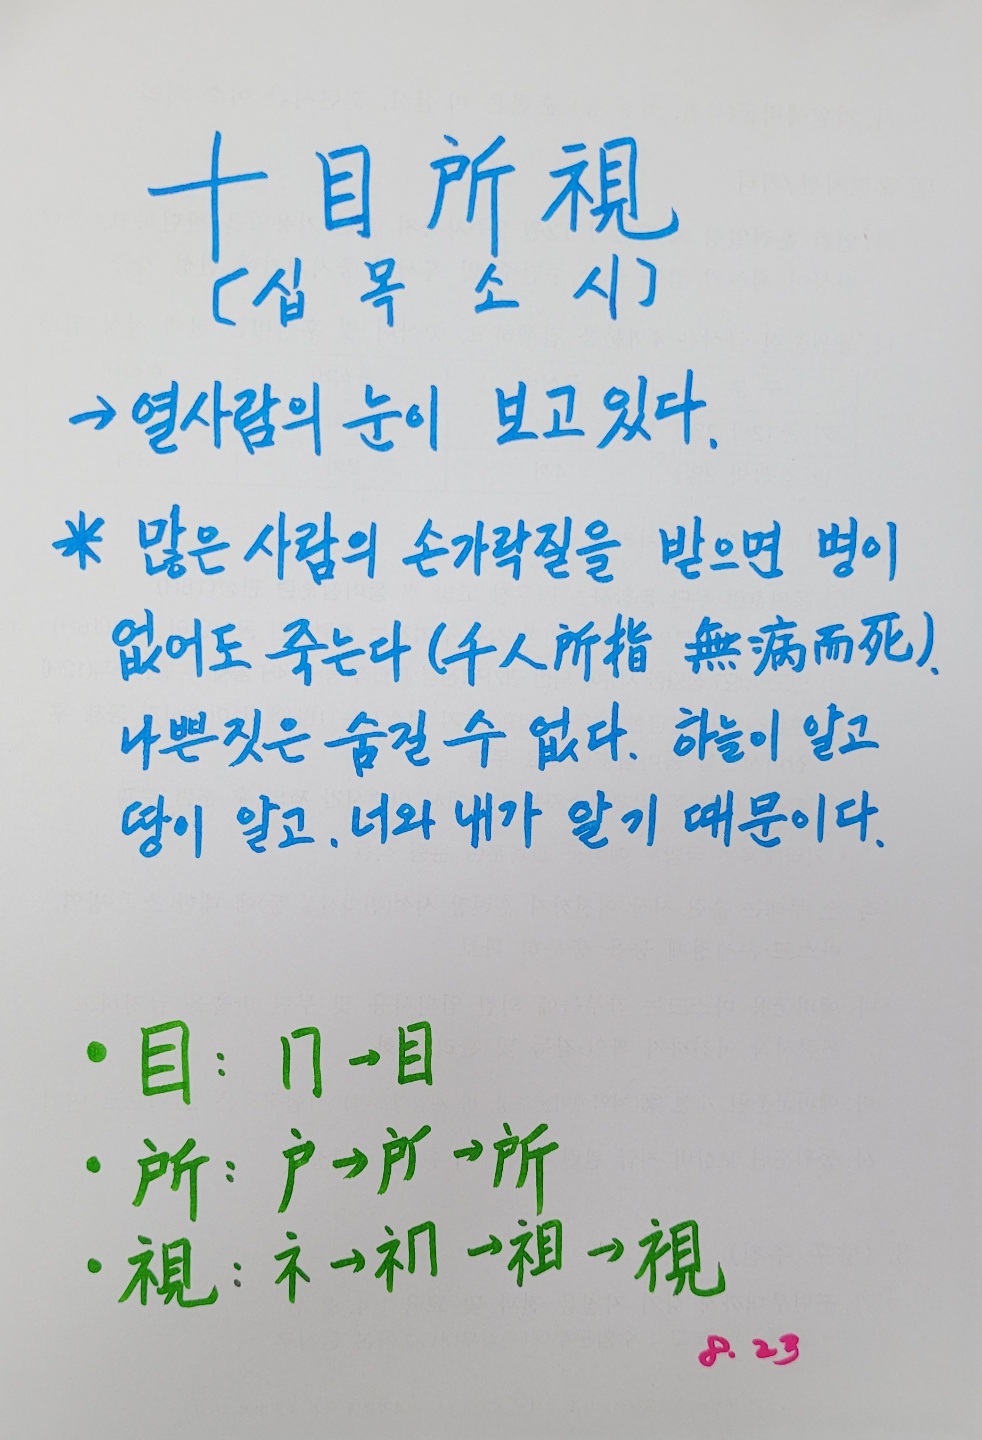 十目所視
[십목소시]
→ 열사람의 눈이 보고있다.
* 많은 사람의 손가락질을 받으면 병이
없어도 죽는다 (千人所指 無病而死).
나쁜짓은 숨길 수 없다. 하늘이 알고
땅이 알고, 너와 내가 알기 때문이다.
• 目: 冂 → 目
• 所: 戶 → 所
• 視: 礻 → 祖 → 視
8. 23